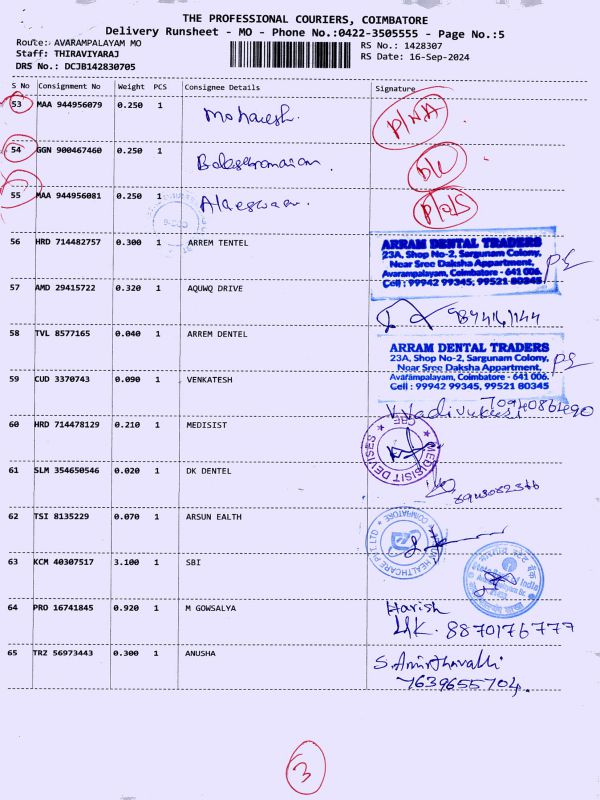 THE PROFESSIONAL COURIERS, COIMBATORE
Delivery Runsheet - MO - Phone No.:0422-3505555 - Page No.:5
Route: AVARAMPALAYAM MO
RS No.: 1428307
Staff: THIRAVIYARAJ
RS Date: 16-Sep-2024
DRS No.: DCJB142830705
S No Consignment No Weight PCS Consignee Details Signature
53 MAA 944956079 0.250 1 P/NA
54 GGN 900467460 0.250 1
55 MAA 944956081 0.250 1
56 HRD 714482757 0.300 1 ARREM TENTEL
ARRAM DENTAL TRADERS
23A, Shop No-2, Sargunam Colony,
Near Sree Daksha Appartment,
Avarampalayam, Coimbatore - 641 006.
Cell : 99942 99345, 99521 80345
57 AMD 29415722 0.320 1 AQUWQ DRIVE
58 TVL 8577165 0.040 1 ARREM DENTEL
ARRAM DENTAL TRADERS
23A, Shop No-2, Sargunam Colony,
Near Sree Daksha Appartment,
Avarampalayam, Coimbatore - 641 006.
Cell : 99942 99345, 99521 80345
59 CUD 3370743 0.090 1 VENKATESH
60 HRD 714478129 0.210 1 MEDISIST
MEDISIST DEVISES * CBE *
61 SLM 354650546 0.020 1 DK DENTEL
62 TSI 8135229 0.070 1 ARSUN EALTH
HEALTHCARE PVT.LTD * COIMBATORE *
63 KCM 40307517 3.100 1 SBI
State Bank of India
64 PRO 16741845 0.920 1 M GOWSALYA Harish
8870176777
65 TRZ 56973443 0.300 1 ANUSHA S. Amirthavalli
7639655704.
3